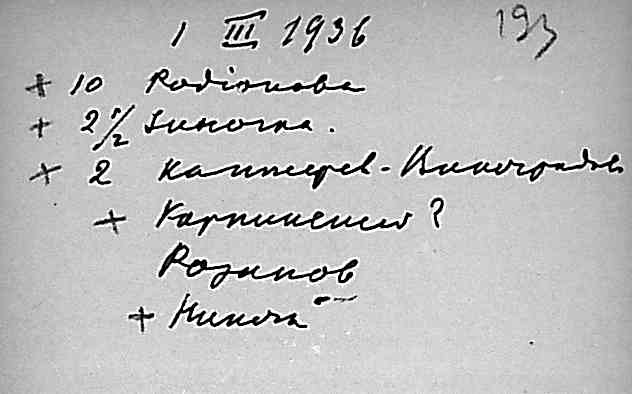 1 III 1936 193
+ 10 Родіонова
+ 2 1/2 Зиночка.
+ 2 Каптерев - Виноградов
+ Карпинский ?
Розанов
+ Нина